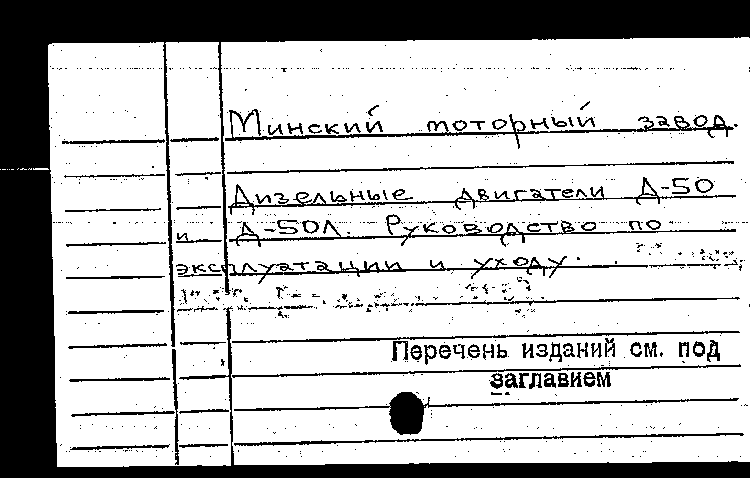 Минский моторный завод.
Дизельные двигатели Д-50
и Д-50Л. Руководство по
эксплуатации и уходу.
Перечень изданий см. под
заглавием